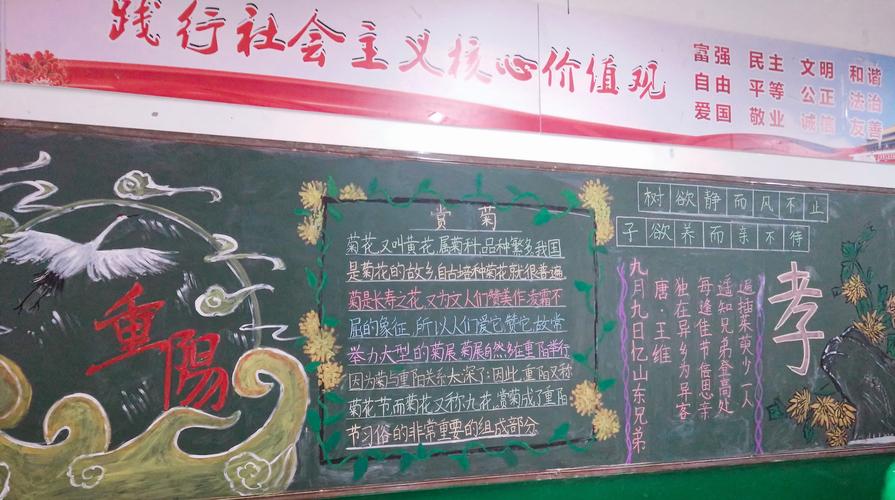 践行社会主义核心价值观
富强 民主 文明 和谐
自由 平等 公正 法治
爱国 敬业 诚信 友善
重阳
赏菊
菊花又叫黄花,属菊科,品种繁多我国
是菊花的故乡,自古培种菊花就很普遍
菊是长寿之花,又为文人们赞美作凌霜不
屈的象征,所以人们爱它,赞它,故常
举办大型的菊展,菊展自然多在重阳举行
因为菊与重阳关系太深了;因此,重阳又称
菊花节而菊花又称九花,赏菊成了重阳
节习俗的非常重要的组成部分
树欲静而风不止
子欲养而亲不待
九月九日忆山东兄弟
唐·王维
独在异乡为异客
每逢佳节倍思亲
遥知兄弟登高处
遍插茱萸少一人
孝